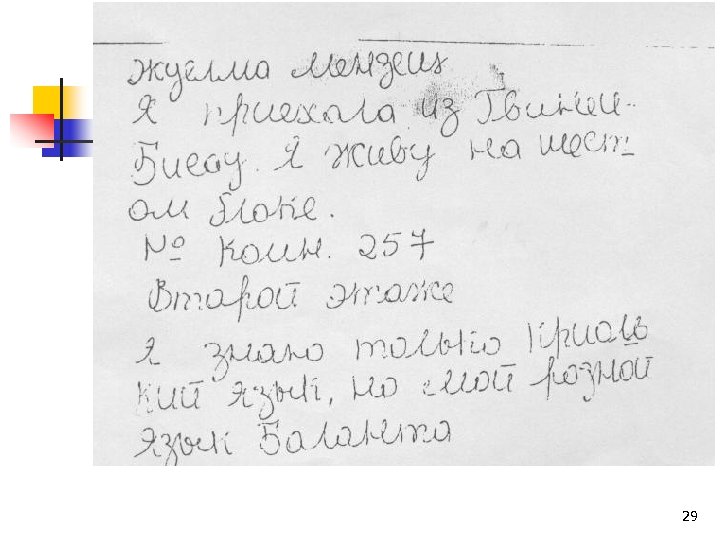 Жуелма Мендеиз
Я приехала из Гвинеи-
Бисау. Я живу на шест
ом блоке.
№ комн. 257
Второй этаже
Я знаю только криоль
кий язык, но мой розной
язык Баланта
29